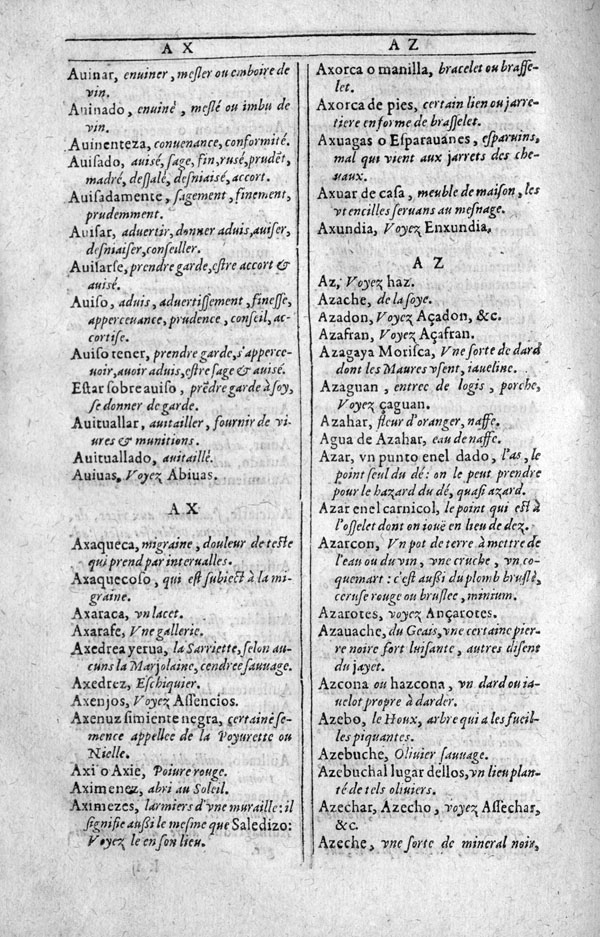 A X
Auinar, enuiner, mesler ou emboire de
vin.
Auinado, enuiné, meslé ou imbu de
vin.
Auinenteza, conuenance, conformité.
Auisado, auisé, sage, fin, rusé, prudẽt,
madré, dessalé, desniaisé, accort.
Auisadamente, sagement, finement,
prudemment.
Auisar, aduertir, donner aduis, auiser,
desniaiser, conseiller.
Auisarse, prendre garde, estre accort &
auisé.
Auiso, aduis, aduertissement, finesse,
apperceuance, prudence, conseil, ac-
cortise.
Auiso tener, prendre garde, s'apperce-
uoir, auoir aduis, estre sage & auisé.
Estar sobre auiso, prẽdre garde à soy,
se donner de garde.
Auituallar, auitailler, fournir de vi-
ures & munitions.
Auituallado, auitaillé.
Auiuas, Voyez Abiuas.
A X
Axaqueca, migraine, douleur de teste
qui prend par interualles.
Axaquecoso, qui est subiect à la mi-
graine.
Axaraca, vn lacet.
Axarafe, Vne gallerie.
Axedrea yerua, la Sarriette, selon au-
cuns la Marjolaine, cendree sauuage.
Axedrez, Eschiquier.
Axenjos, Voyez Assencios.
Axenuz simiente negra, certaine se-
mence appellee de la Poyurette ou
Nielle.
Axi o Axie, Poiure rouge.
Aximenez, abri au Soleil.
Aximezes, larmiers d'vne muraille: il
signifie außi le mesme que Saledizo:
Voyez le en son lieu.
A Z
Axorca o manilla, bracelet ou brasse-
let.
Axorca de pies, certain lien ou jarre-
tiere en forme de brasselet.
Axuagas o Esparauanes, esparuins,
mal qui vient aux jarrets des che-
uaux.
Axuar de casa, meuble de maison, les
vtencilles seruans au mesnage.
Axundia, Voyez Enxundia.
A Z
Az, Voyez haz.
Azache, de la soye.
Azadon, Voyez Açadon, &c.
Azafran, Voyez Açafran.
Azagaya Morisca, Vne sorte de dard
dont les Maures vsent, iaueline.
Azaguan, entree de logis, porche,
Voyez çaguan.
Azahar, fleur d'oranger, naffe.
Agua de Azahar, eau de naffe.
Azar, vn punto enel dado, l'as, le
point seul du dé: on le peut prendre
pour le hazard du dé, quasi azard.
Azar enel carnicol, le point qui est à
l'osselet dont on iouë en lieu de dez.
Azarcon, Vn pot de terre à mettre de
l'eau ou du vin, vne cruche, vn co-
quemart: c'est außi du plomb bruslé,
ceruse rouge ou bruslee, minium.
Azarotes, voyez Ançarotes.
Azauache, du Geais, vne certaine pier-
re noire fort luisante, autres disent
du jayet.
Azcona ou hazcona, vn dard ou ia-
uelot propre à darder.
Azebo, le Houx, arbre qui a les fueil-
les piquantes.
Azebuche, Oliuier sauuage.
Azebuchal lugar dellos, vn lieu plan-
té de tels oliuiers.
Azechar, Azecho, voyez Assechar,
&c.
Azeche, vne sorte de mineral noir,